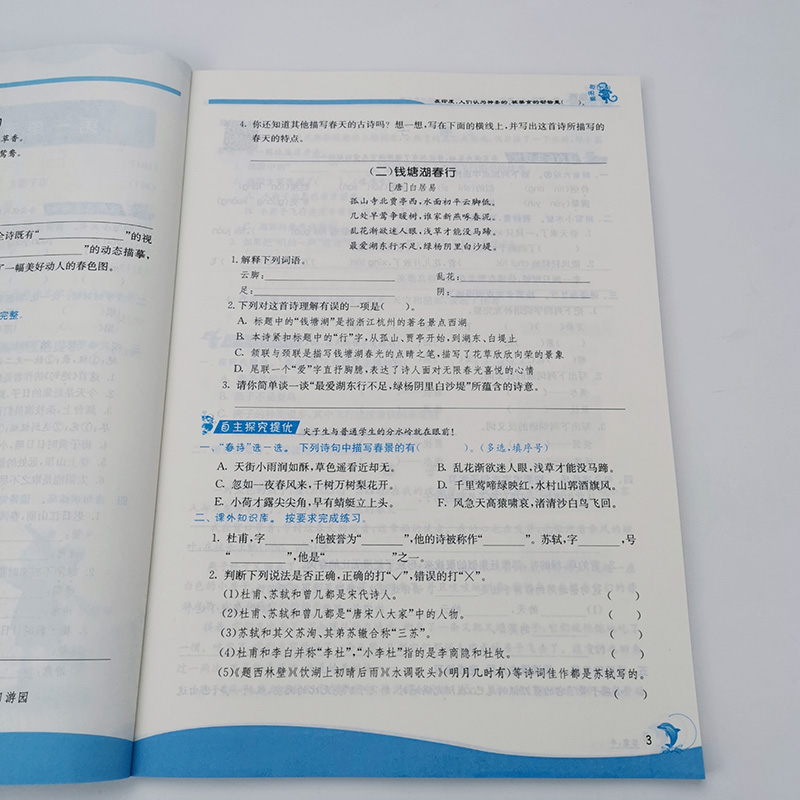 草香。
鸳鸯。
诗既有“ ”的视
”的动态描摹，
了一幅美好动人的春色图。
完整。
游园
在印度，人们认为神圣的、被禁食的动物是( )。
4. 你还知道其他描写春天的古诗吗？想一想，写在下面的横线上，并写出这首诗所描写的
春天的特点。
(二)钱塘湖春行
[唐]白居易
孤山寺北贾亭西，水面初平云脚低。
几处早莺争暖树，谁家新燕啄春泥。
乱花渐欲迷人眼，浅草才能没马蹄。
最爱湖东行不足，绿杨阴里白沙堤。
1. 解释下列词语。
云脚： 乱花：
足： 阴：
2. 下列对这首诗理解有误的一项是( )。
A. 标题中的“钱塘湖”是指浙江杭州的著名景点西湖
B. 本诗紧扣标题中的“行”字，从孤山、贾亭开始，到湖东、白堤止
C. 颔联与颈联是描写钱塘湖春光的点睛之笔，描写了花草欣欣向荣的景象
D. 尾联一个“爱”字直抒胸臆，表达了诗人面对无限春光喜悦的心情
3. 请你简单谈一谈“最爱湖东行不足，绿杨阴里白沙堤”所蕴含的诗意。
自主探究提优 尖子生与普通学生的分水岭就在眼前！
一、“春诗”选一选。 下列诗句中描写春景的有( )。(多选，填序号)
A. 天街小雨润如酥，草色遥看近却无。 B. 乱花渐欲迷人眼，浅草才能没马蹄。
C. 忽如一夜春风来，千树万树梨花开。 D. 千里莺啼绿映红，水村山郭酒旗风。
E. 小荷才露尖尖角，早有蜻蜓立上头。 F. 风急天高猿啸哀，渚清沙白鸟飞回。
二、课外知识库。 按要求完成练习。
1. 杜甫，字 ，他被誉为“ ”，他的诗被称作“ ”。苏轼，字 ，号
“ ”，他是“ ”之一。
2. 判断下列说法是否正确，正确的打“✓”，错误的打“×”。
(1)杜甫、苏轼和曾几都是宋代诗人。 ( )
(2)杜甫、苏轼和曾几都是“唐宋八大家”中的人物。 ( )
(3)苏轼和其父苏洵、其弟苏辙合称“三苏”。 ( )
(4)杜甫和李白并称“李杜”，“小李杜”指的是李商隐和杜牧。 ( )
(5)《题西林壁》《饮湖上初晴后雨》《水调歌头》(明月几时有)等诗词佳作都是苏轼写的。
( )
3